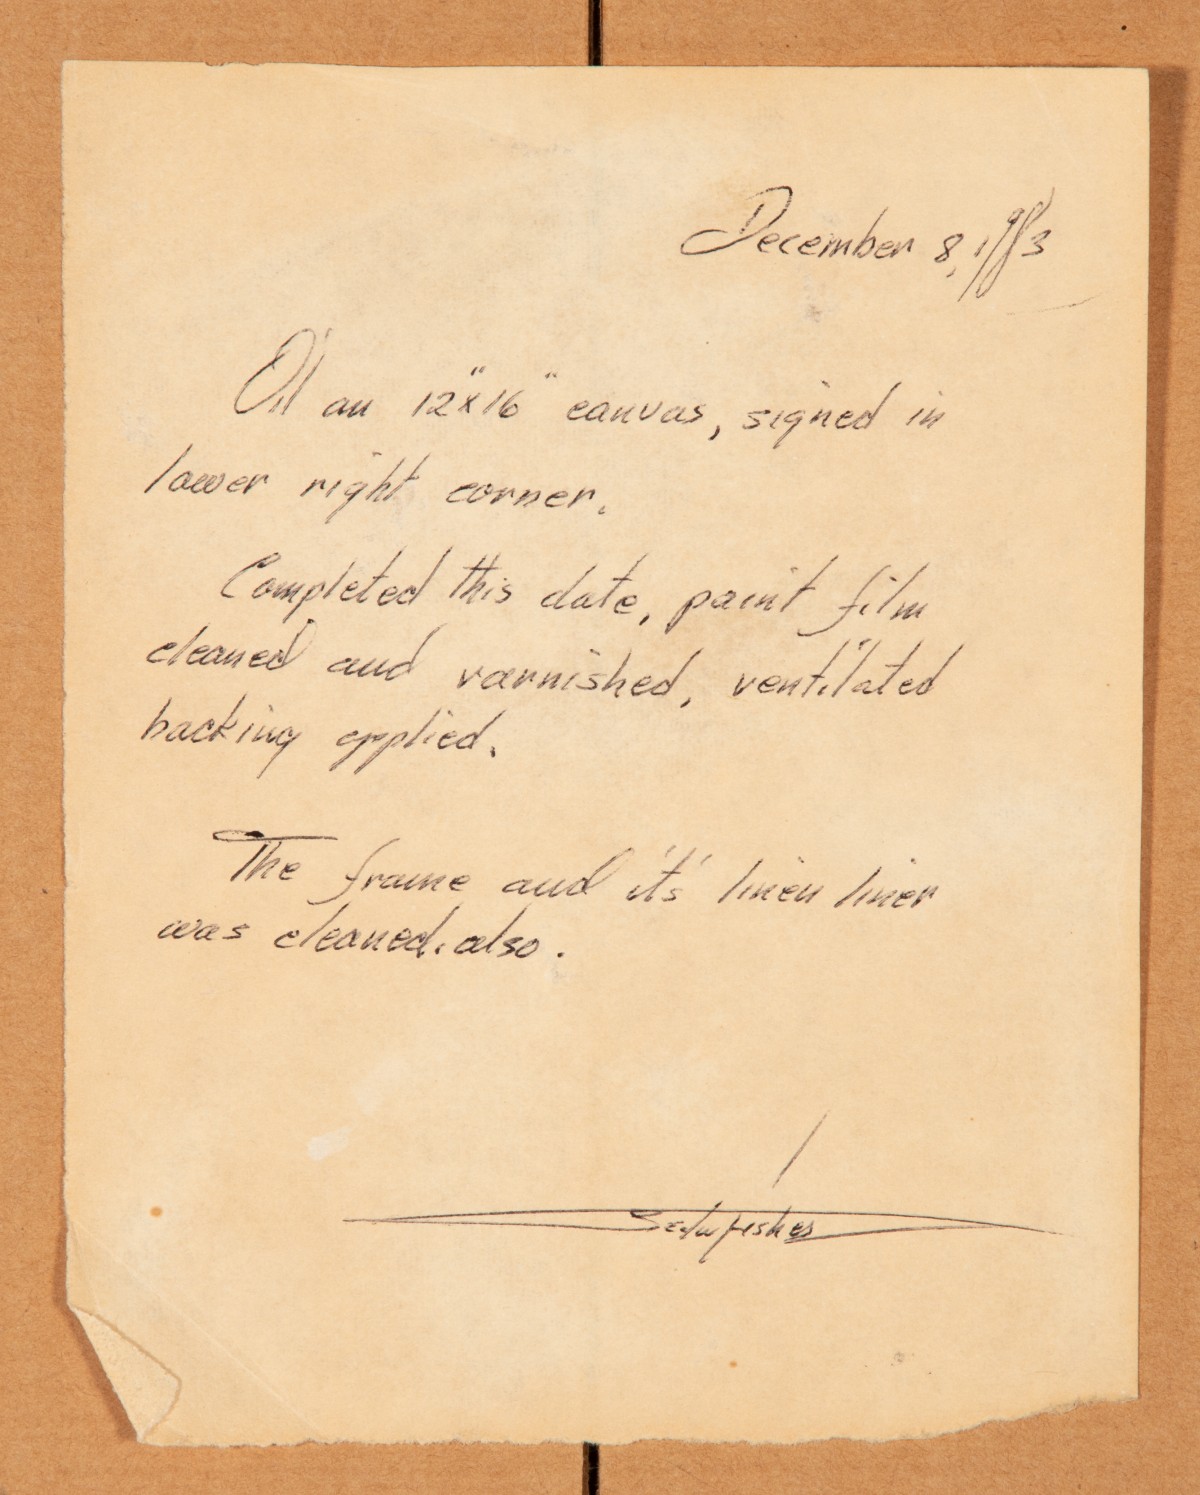 December 8, 1983
Oil an 12"x16" canvas, signed in
lower right corner.
Completed this date, paint film
cleaned and varnished, ventilated
backing applied.
The frame and it's linen liner
was cleaned. also.